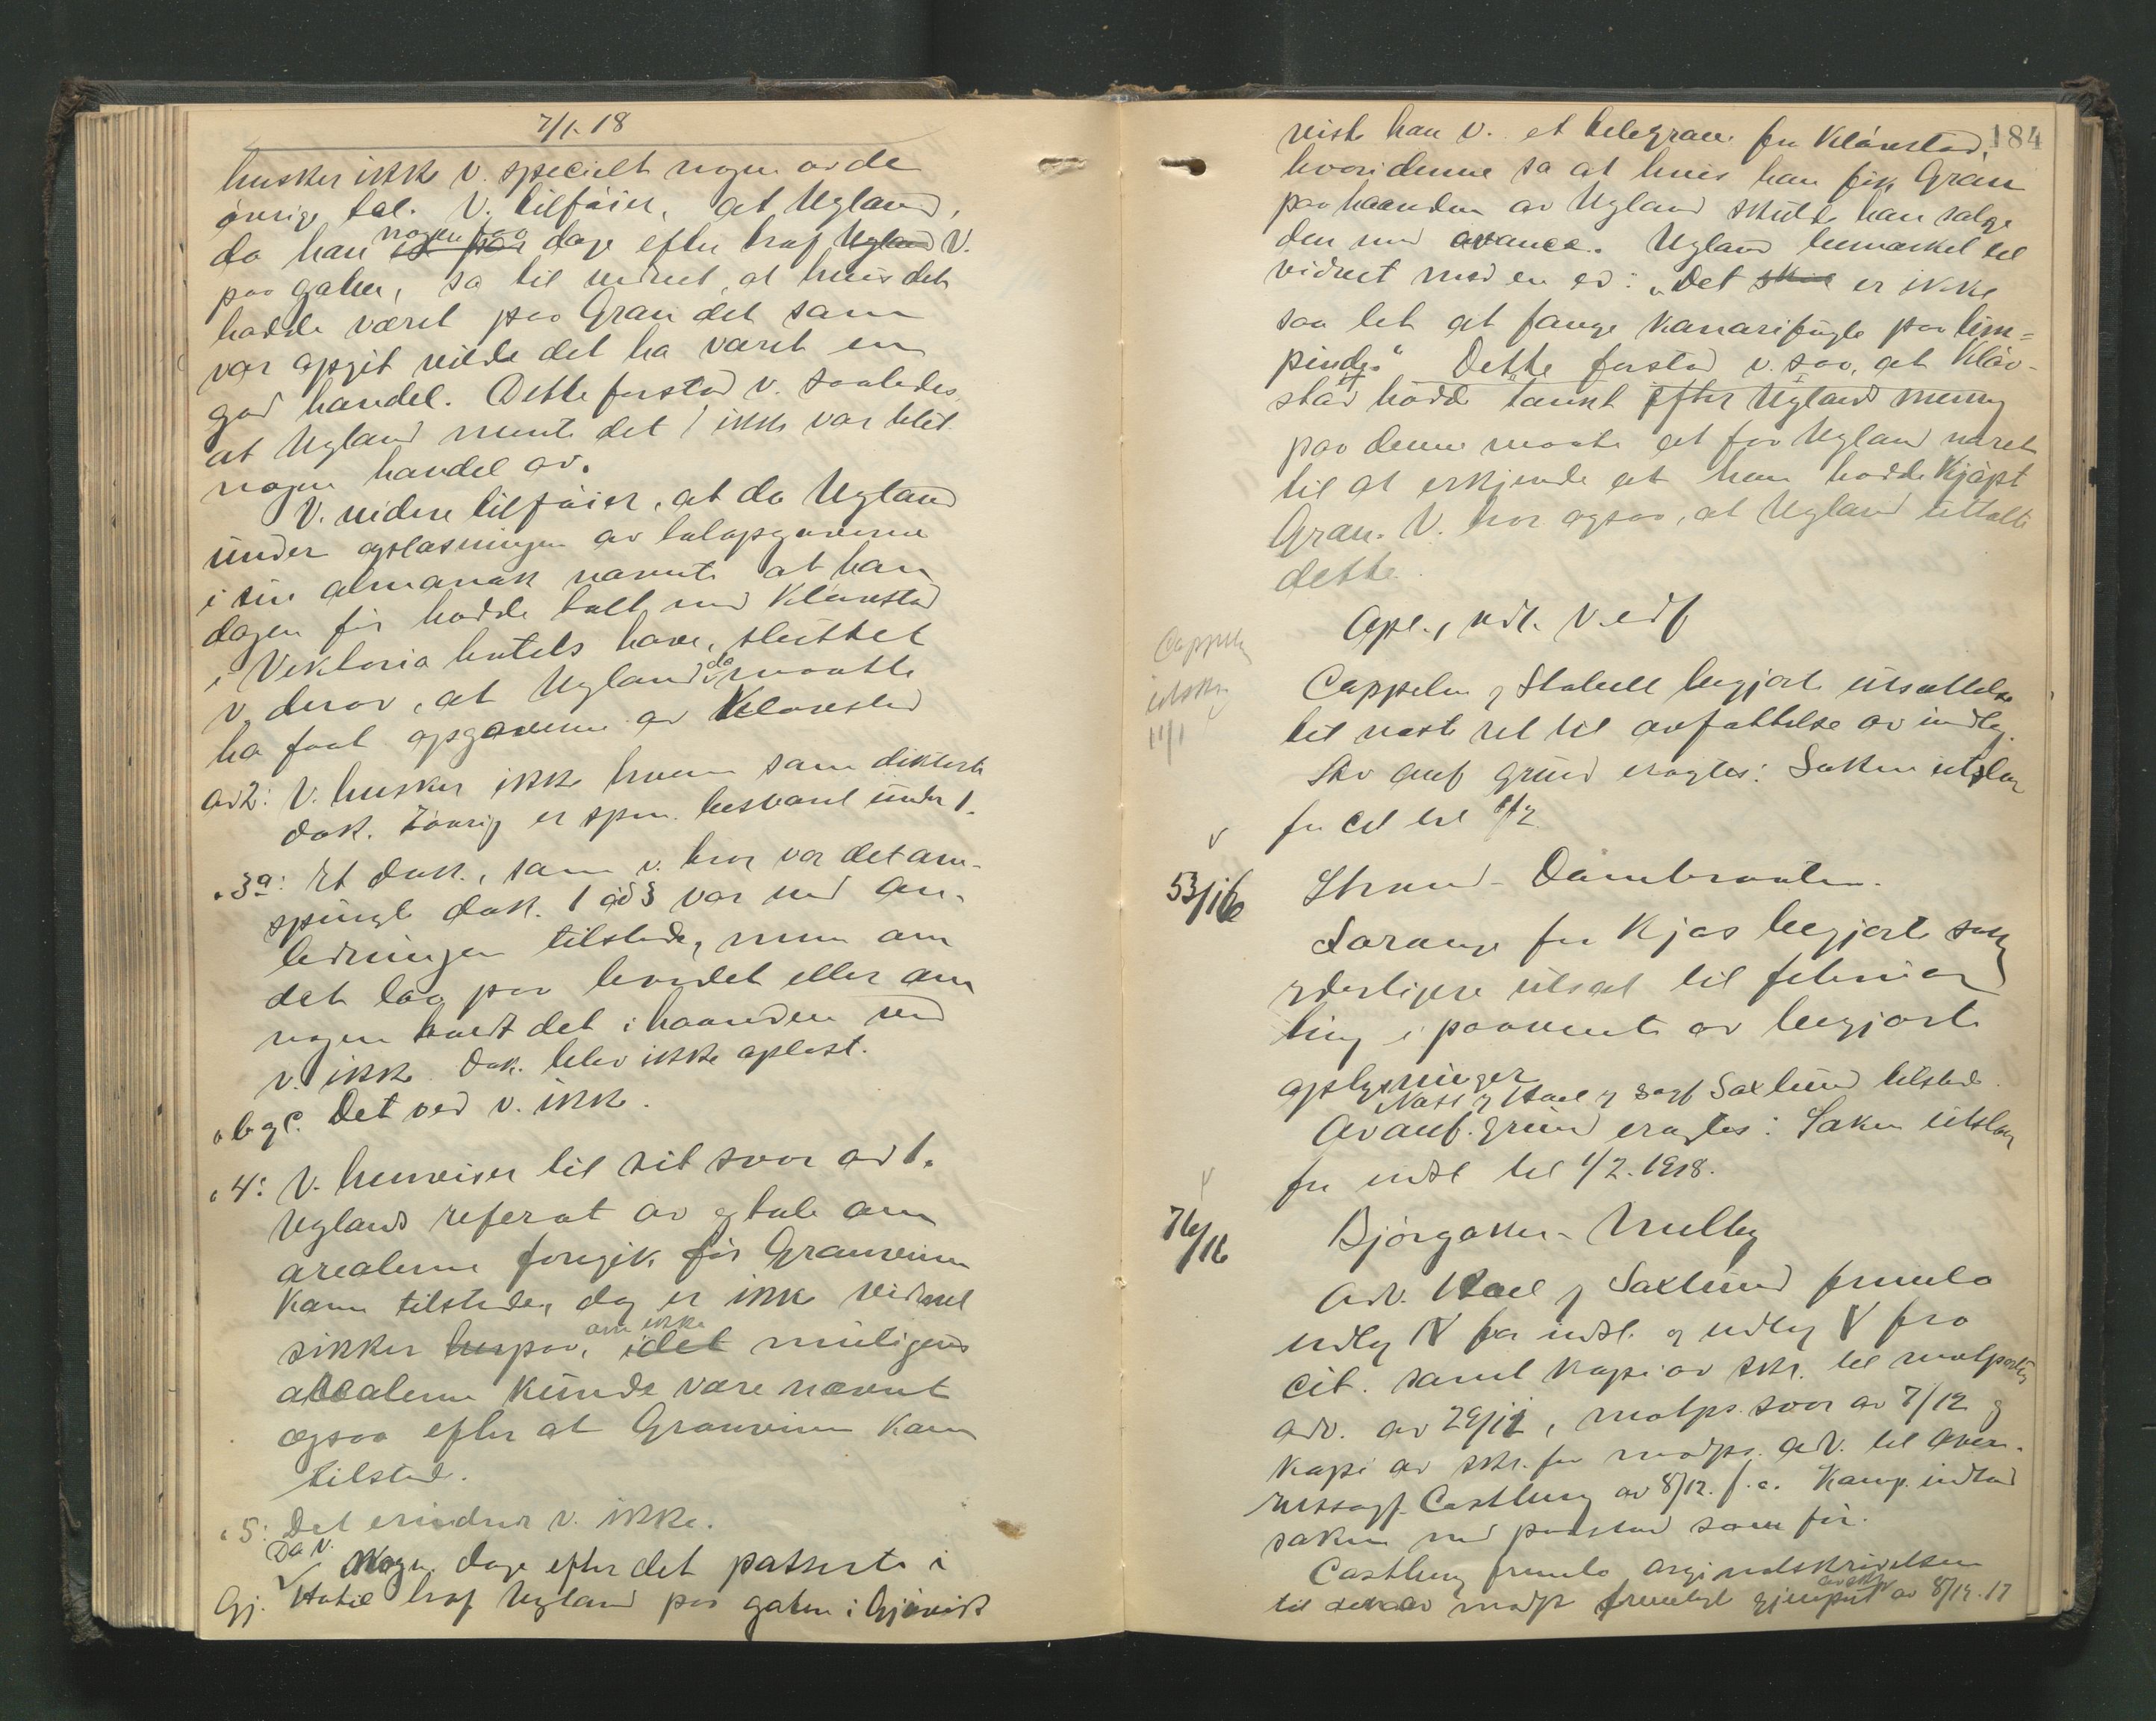 7/1. 18
husker ikke v. specielt nogen av de
øvrige tal. V. tilføier, at Ugland,
da han nogen faa dage efter traf Ugland V.
paa gaten, sa til vidnet, at hvis det
hadde været paa Gran det som
var opgit vilde det ha været en
god handel. Dette forstod v. saaledes
at Ugland mente det ikke var blit
nogen handel av.
V. videre tilføier, at da Ugland
under oplæsningen av talopgaverne
i sin almanak nævnte at han
dagen før hadde talt med Kløvestad
i Viktoria hotels have, sluttet
v. derav, at Ugland da maatte
ha faat opgaverne av Kløvestad
ad 2: V. husker ikke hvem som dikterte
dok. Iøvrig er spm. besvaret under 1.
" 3a: Et dok., som v. tror var det om-
spurgte dok. 1 ad 3 var ved an-
ledningen tilstede, men om
det laa paa bordet eller om
nogen hadt det i haanden ved
v. ikke. Dok. blev ikke oplæst.
" b og c. Det ved v. ikke.
" 4: V. henviser til sit svar ad 1.
Uglands referat av og tale om
arealerne foregik før Grauvinn
kom tilstede, dog er ikke vidnet
sikker herpaa, om ikke idet muligens
arealerne kunde være nævnt
ogsaa efter at Grauvinn kom
tilstede.
" 5: Det erindrer v. ikke.
Da v. Nogen dage efter det passerte i
Gj. Hotel traf Ugland paa gaten i Gjøvik
184
viste han v. et telegram fra Kløvestad,
hvori denne sa at hvis han fik Gran
paa haanden av Ugland skulde han sælge
den med avance. Ugland bemerket til
vidnet med en ed: "Det skul er ikke
saa let at fange kanarifugle paa lim=
pinde." Dette forstod v. saa, at Kløv-
stad hadde tænkt efter Uglands mening
paa denne maate at faa Ugland narret
til at erkjende at han hadde kjøpt
Gran. V. tror ogsaa, at Ugland uttalte
dette.
Opl., vdt. V. edf
Cappelen
utskr
11/1
Cappelen og Stabell begjærte utsættelse
til næste ret til avfattelse av indlæg.
Av anf grund eragtes: Saken utstaar
for cit til 1/2
53/16
Strand - Dambraaten.
Sørange for Kjos begjærte saken
yderligere utsat til februar
ting i paavente av begjærte
oplysninger
Næss og Hoel og sagf Saxlund tilstede.
Av anf. grund eragtes: Saken utstaar
for indst til 1/2. 1918.
76/16
Bjørgaker - Mulby
Adv. Hoel og Saxlund fremla
indlæg N for indst. og indlæg V fra
cit. samt kopi av skr. til motpartens
adv. av 29/11, motps. svar av 7/12 og
kopi av skr. fra motps. adv. til over-
retssagf. Castberg av 8/12. f. a. Komp. indlod
saken med paastand som før.
Castberg fremla originalskrivelsen
til den av motp fremlagt gjenpart avskr av 8/12. 17